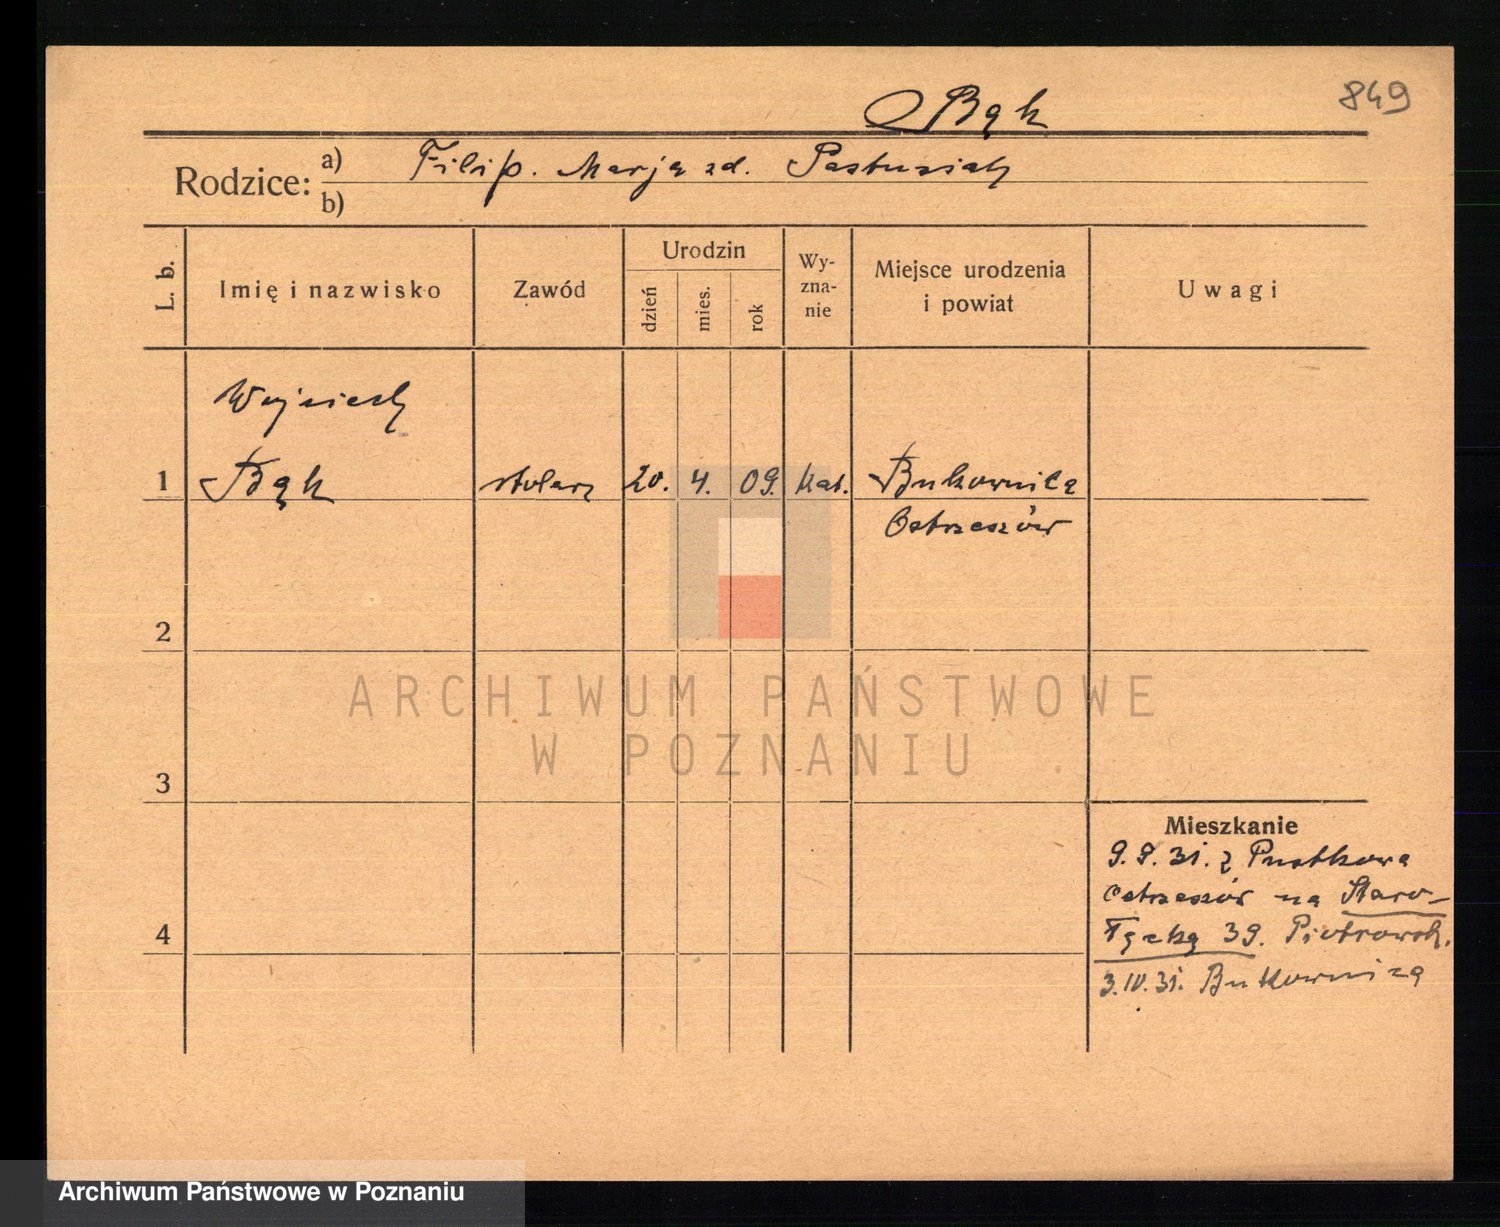 849
Bąk
Rodzice: a) Filip. Marja zd. Pastusiak
b)
L. b.
Imię i nazwisko
Zawód
Urodzin
dzień
mies.
rok
Wy-
zna-
nie
Miejsce urodzenia
i powiat
Uwagi
Wojciech
1 Bąk stolarz 20. 4. 09. kat. Bukownica
Ostrzeszów
2
ARCHIWUM PAŃSTWOWE
W POZNANIU
3
Mieszkanie
31. z Pustkowa
Ostrzeszów na Staro-
łęcką 39. Piotrowsk.
4
3.IV.31. Bukownica
Archiwum Państwowe w Poznaniu